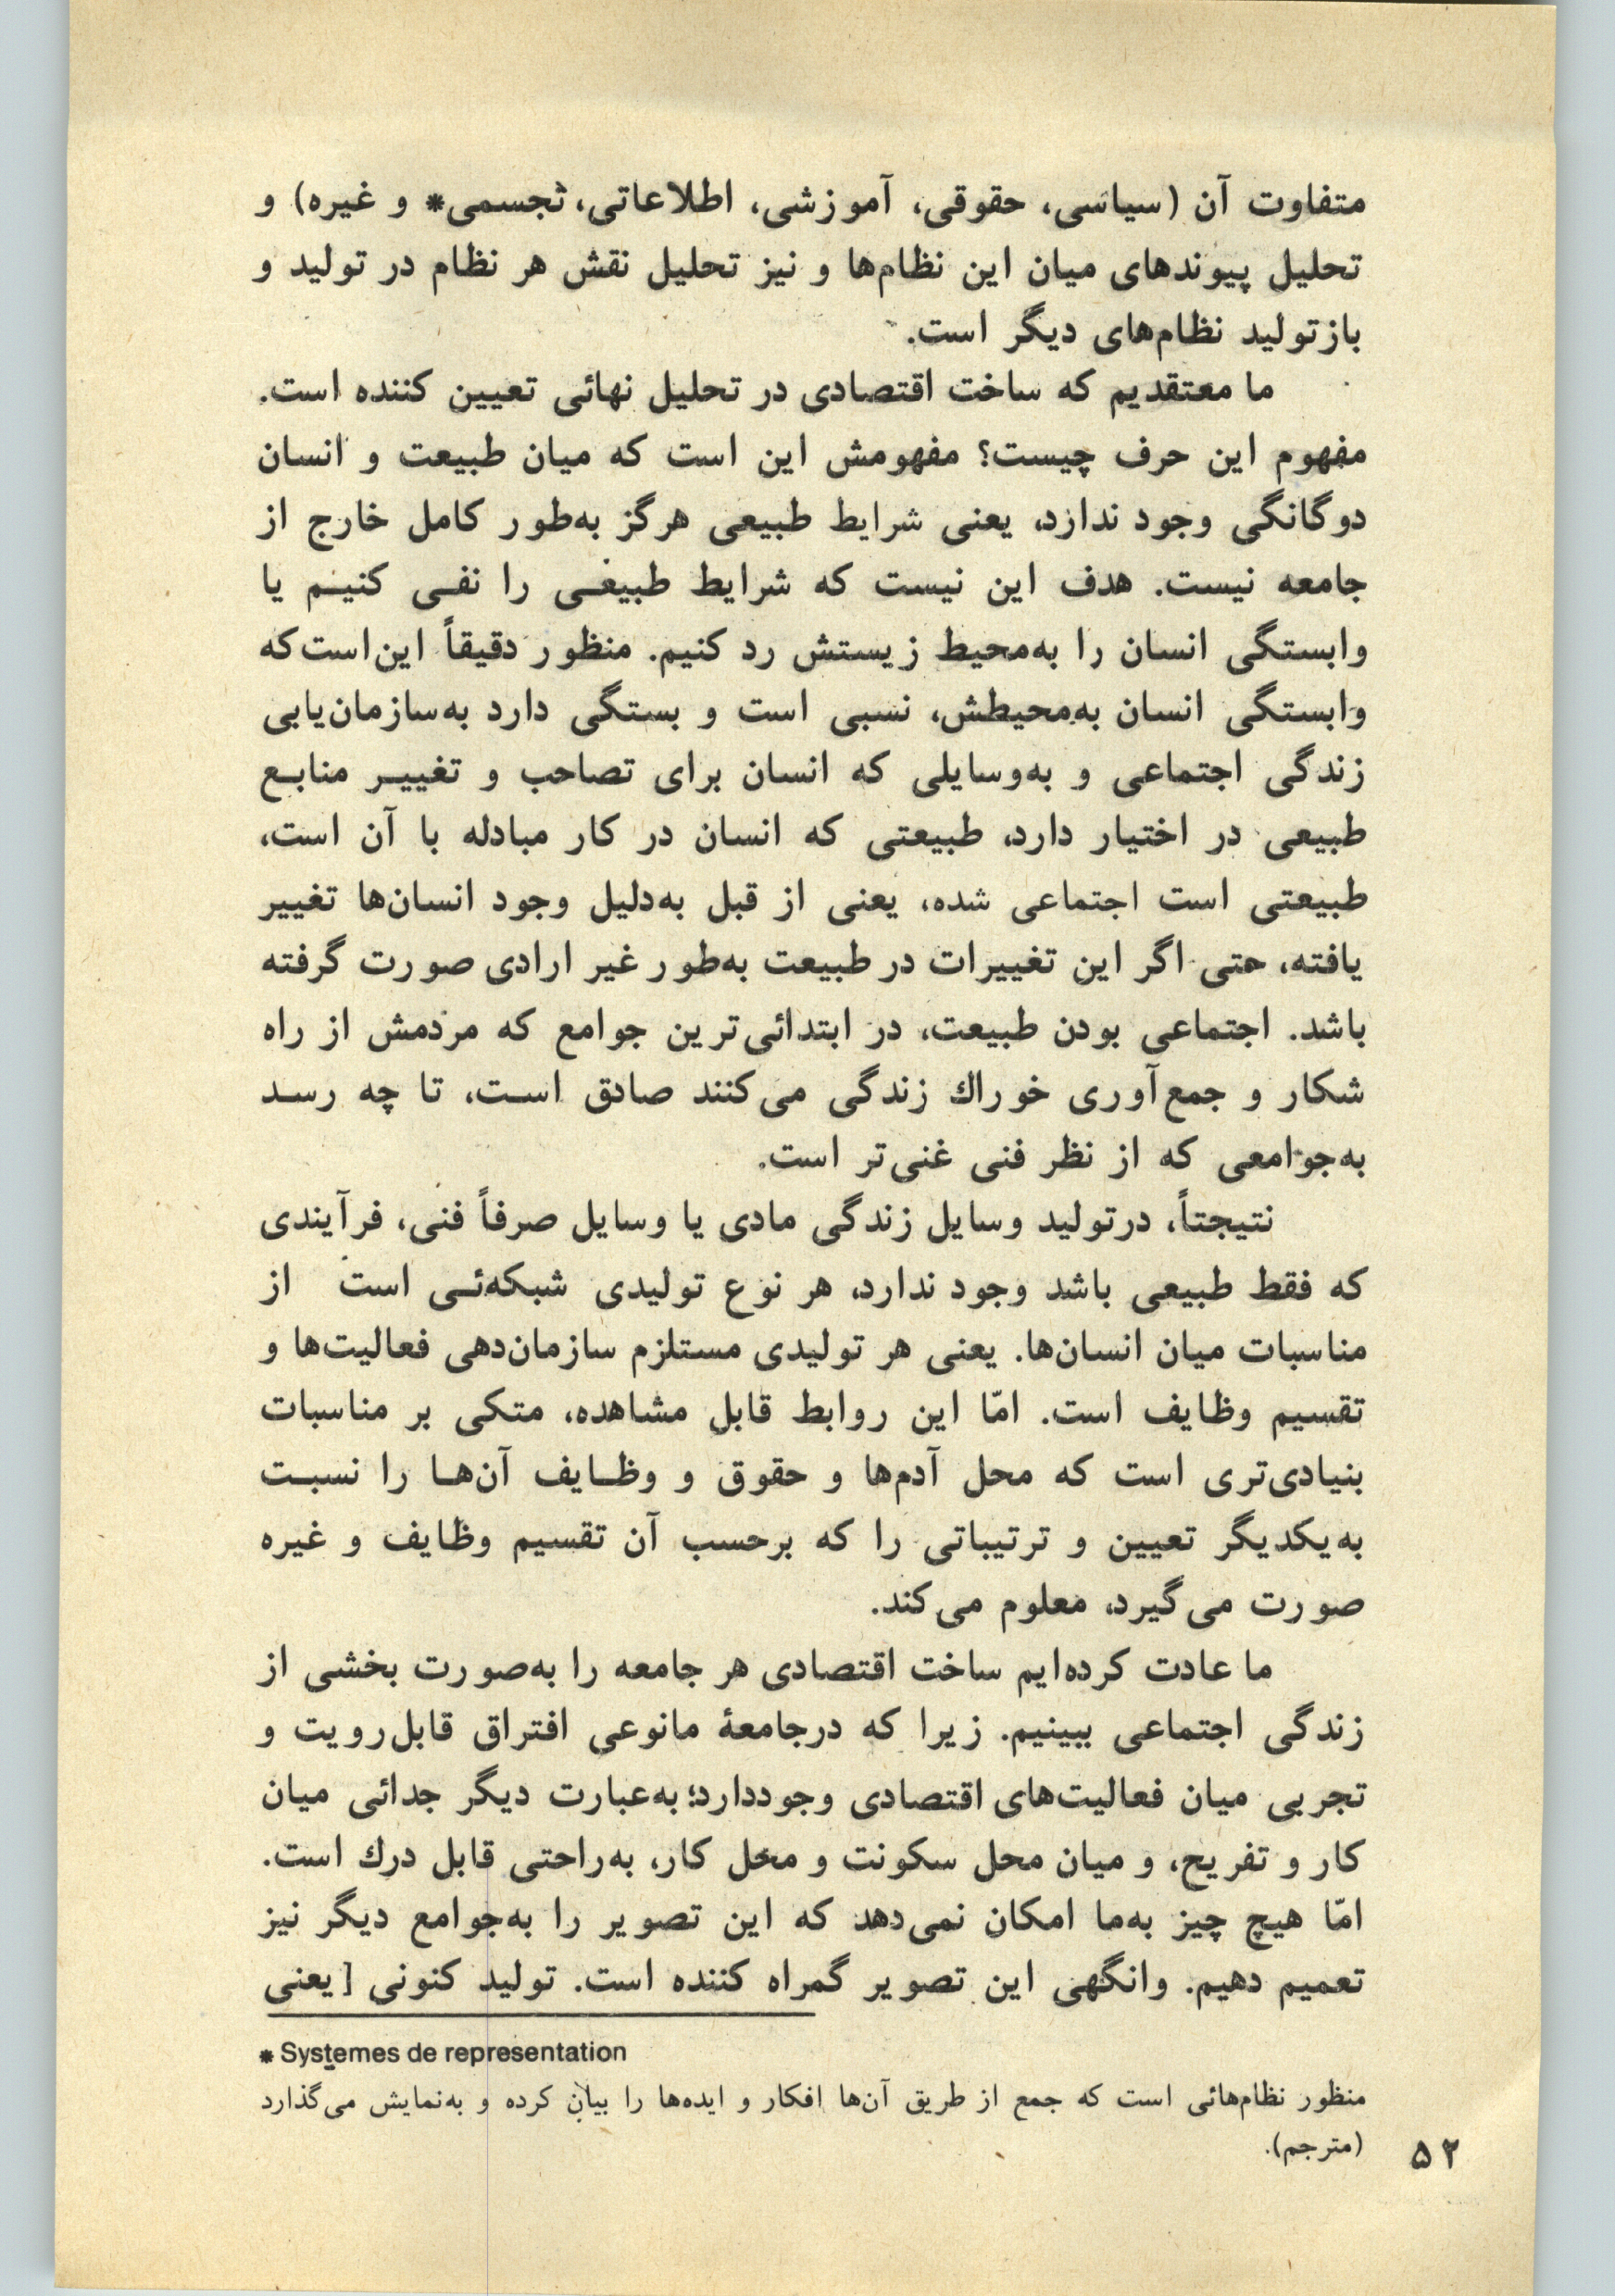 متفاوت آن (سیاسی، حقوقی، آموزشی، اطلاعاتی، تجسمی* و غیره) و
تحلیل پیوندهای میان این نظام‌ها و نیز تحلیل نقش هر نظام در تولید و
بازتولید نظام‌های دیگر است.
ما معتقدیم که ساخت اقتصادی در تحلیل نهائی تعیین کننده است.
مفهوم این حرف چیست؟ مفهومش این است که میان طبیعت و انسان
دوگانگی وجود ندارد، یعنی شرایط طبیعی هرگز به‌طور کامل خارج از
جامعه نیست. هدف این نیست که شرایط طبیعی را نفی کنیم یا
وابستگی انسان را به‌محیط زیستش رد کنیم. منظور دقیقاً این‌است‌که
وابستگی انسان به‌محیطش، نسبی است و بستگی دارد به‌سازمان‌یابی
زندگی اجتماعی و به‌وسایلی که انسان برای تصاحب و تغییر منابع
طبیعی در اختیار دارد، طبیعتی که انسان در کار مبادله با آن است،
طبیعتی است اجتماعی شده، یعنی از قبل به‌دلیل وجود انسان‌ها تغییر
یافته، حتی اگر این تغییرات در طبیعت به‌طور غیر ارادی صورت گرفته
باشد. اجتماعی بودن طبیعت، در ابتدائی‌ترین جوامع که مردمش از راه
شکار و جمع‌آوری خوراك زندگی می‌کنند صادق است، تا چه رسد
به‌جوامعی که از نظر فنی غنی‌تر است.
نتیجتاً، درتولید وسایل زندگی مادی یا وسایل صرفاً فنی، فرآیندی
که فقط طبیعی باشد وجود ندارد، هر نوع تولیدی شبکه‌ئی است از
مناسبات میان انسان‌ها. یعنی هر تولیدی مستلزم سازمان‌دهی فعالیت‌ها و
تقسیم وظایف است. امّا این روابط قابل مشاهده، متکی بر مناسبات
بنیادی‌تری است که محل آدم‌ها و حقوق و وظایف آن‌ها را نسبت
به‌یکدیگر تعیین و ترتیباتی را که برحسب آن تقسیم وظایف و غیره
صورت می‌گیرد، معلوم می‌کند.
ما عادت کرده‌ایم ساخت اقتصادی هر جامعه را به‌صورت بخشی از
زندگی اجتماعی ببینیم. زیرا که درجامعهٔ مانوعی افتراق قابل‌رویت و
تجربی میان فعالیت‌های اقتصادی وجوددارد؛ به‌عبارت دیگر جدائی میان
کار و تفریح، و میان محل سکونت و محل کار، به‌راحتی قابل درك است.
امّا هیچ چیز به‌ما امکان نمی‌دهد که این تصویر را به‌جوامع دیگر نیز
تعمیم دهیم. وانگهی این تصویر گمراه کننده است. تولید کنونی [یعنی
* Systemes de representation
منظور نظام‌هائی است که جمع از طریق آن‌ها افکار و ایده‌ها را بیان کرده و به‌نمایش می‌گذارد
(مترجم).
۵۲